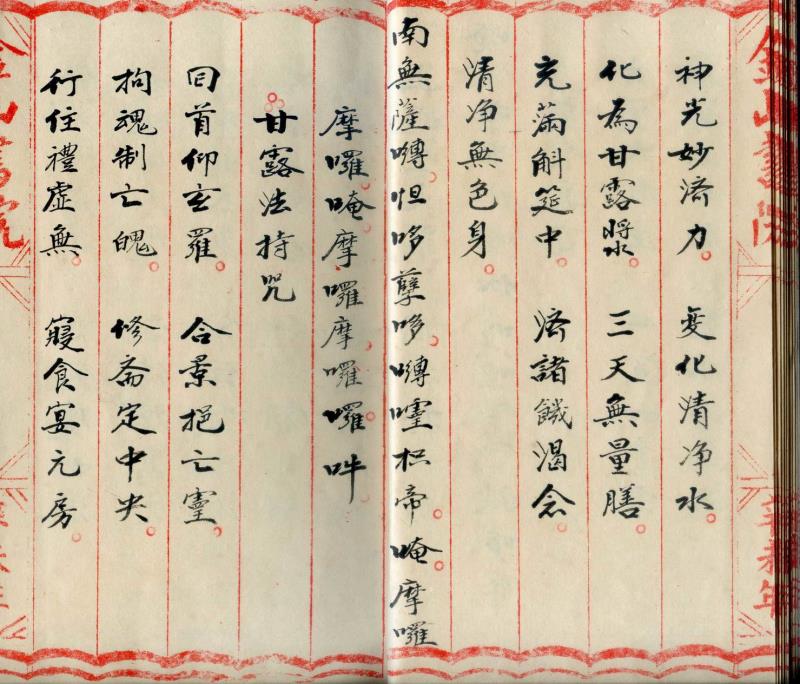 神光妙济力。變化清净水。
化為甘露漿。三天無量膳。
充滿斛筵中。济諸饑渴念。
清净無色身。
南無薩嚩怛哆孽哆。嚩嚧枳帝。唵。摩囉
摩囉。唵。摩囉摩囉囉吽
甘露法持咒
回首仰玄羅。合景挹亡靈。
拘魂制亡魄。修斋定中央。
行住禮虛無。寢食宴元房。